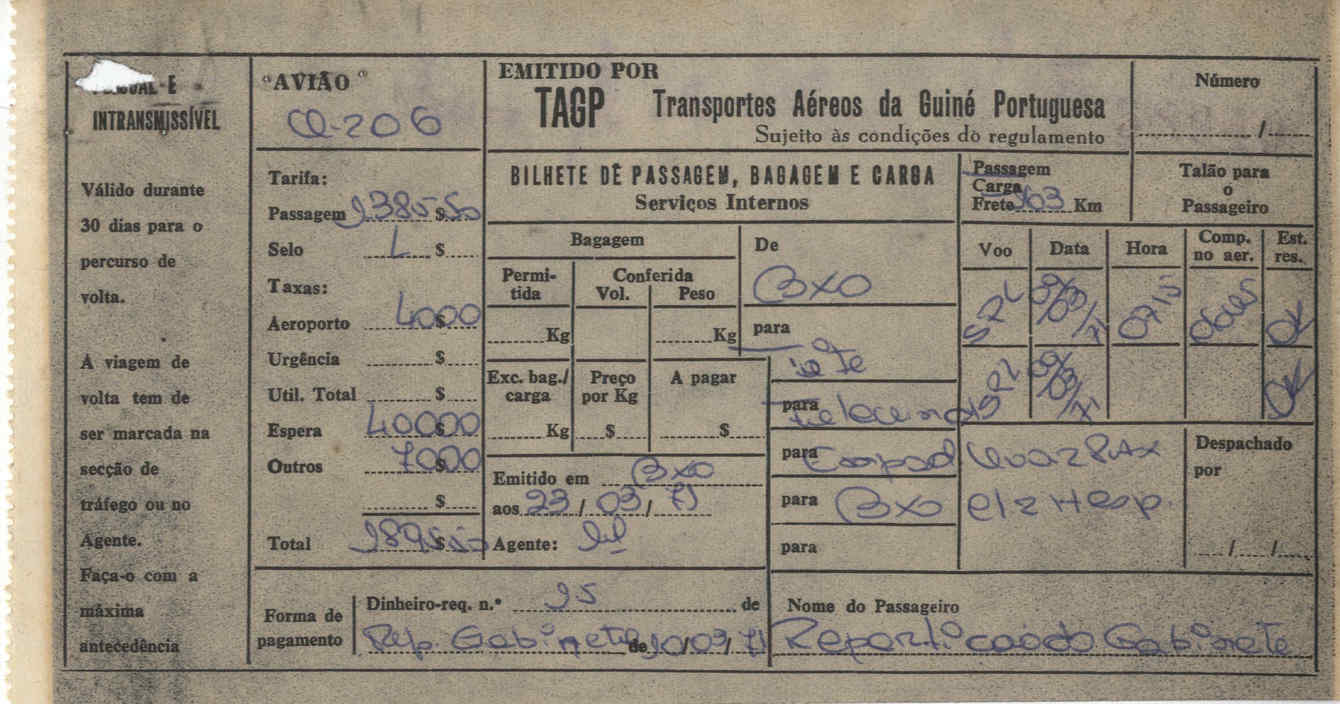 INTRANSMISSÍVEL
Válido durante
30 dias para o
percurso de
volta.
A viagem de
volta tem de
ser marcada na
secção de
tráfego ou no
Agente.
Faça-o com a
máxima
antecedência
"AVIÃO"
CQ-206
Tarifa:
Passagem $
Selo $
Taxas:
Aeroporto 40$00
Urgência $
Util. Total $
Espera 400$00
Outros 70$00
$
Total $
EMITIDO POR
TAGP Transportes Aéreos da Guiné Portuguesa
Sujeito às condições do regulamento
Número
/
BILHETE DE PASSAGEM, BAGAGEM E CARGA
Serviços Internos
Passagem
Carga
Frete 363 Km
Talão para
o
Passageiro
Bagagem
Permi-
tida
Conferida
Vol. Peso
Kg Kg
Exc. bag./
carga
Preço
por Kg
A pagar
Kg $ $
Emitido em BXO
aos 23/03/71
Agente:
De
BXO
para
para
para
para BXO
para
Voo Data Hora Comp. no aer. Est. res.
SPL 09/03/71 0915 OK
SPL 09/03/71 OK
Despachado
por
/ /
Forma de
pagamento
Dinheiro-req. n.º 25 de
Rep. Gabinete de /03/71
Nome do Passageiro
Repartição do Gabinete